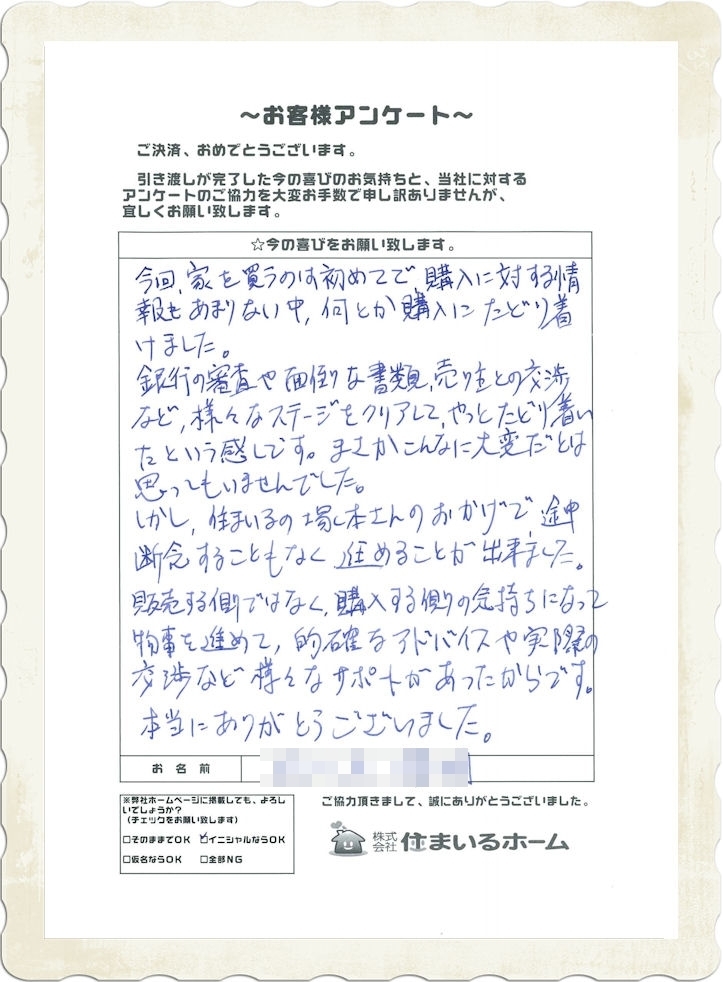 ～お客様アンケート～
ご決済、おめでとうございます。
引き渡しが完了した今の喜びのお気持ちと、当社に対する
アンケートのご協力を大変お手数で申し訳ありませんが、
宜しくお願い致します。
☆今の喜びをお願い致します。
今回、家を買うのは初めてで、購入に対する情
報もあまりない中、何とか購入にたどり着
けました。
銀行の審査や面倒な書類、売り主との交渉
など、様々なステージをクリアして、やっとたどり着い
たという感じです。まさかこんなに大変だとは
思ってもいませんでした。
しかし、住まいるの塚本さんのおかげで、途中
断念することもなく、進めることが出来ました。
販売する側ではなく、購入する側の気持ちになって
物事を進めて、的確なアドバイスや実際の
交渉など様々なサポートがあったからです。
本当にありがとうございました。
お名前
※弊社ホームページに掲載しても、よろし
いでしょうか？
（チェックをお願い致します）
□そのままでOK ☑イニシャルならOK
□仮名ならOK □全部NG
ご協力頂きまして、誠にありがとうございました。
株式会社 住まいるホーム